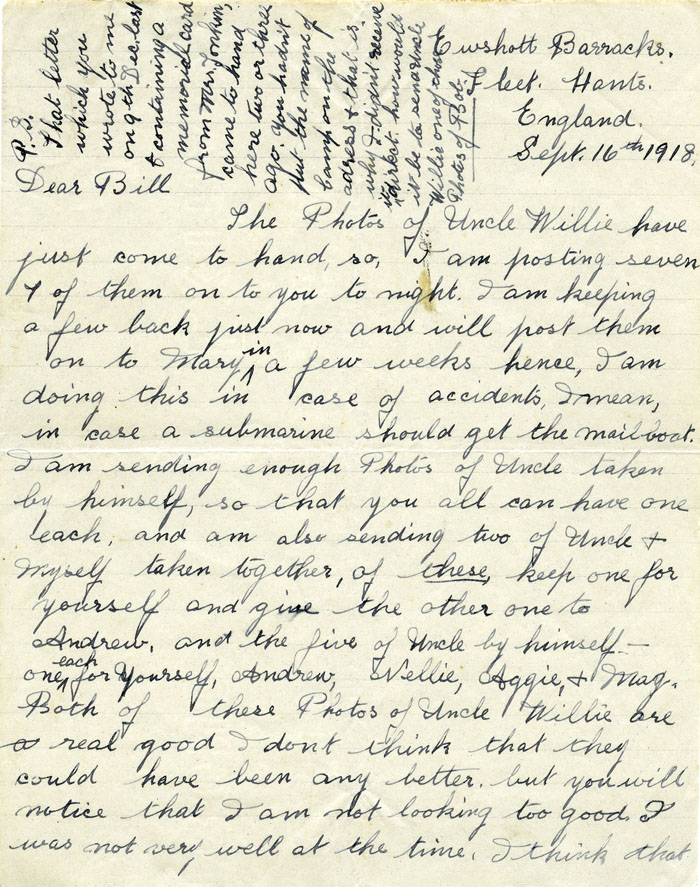 Ewshott Barracks.
Fleet. Hants.
England.
Sept. 16th 1918.
Dear Bill
The Photos of Uncle Willie have
just come to hand, so, I am posting seven
7 of them on to you to night. I am keeping
a few back just now and will post them
on to Mary in a few weeks hence, I am
doing this in case of accidents, I mean,
in case a submarine should get the mailboat.
I am sending enough Photos of Uncle taken
by himself, so that you all can have one
each, and am also sending two of Uncle &
Myself taken together, of these, keep one for
yourself and give the other one to
Andrew, and the five of Uncle by himself —
one each for Yourself, Andrew, Nellie, Aggie, & Mag.
Both of these Photos of Uncle Willie are
real good I dont think that they
could have been any better. but you will
notice that I am not looking too good. I
was not very well at the time. I think that
P.S.
That letter
which you
wrote to me
on 9th Dec. last
& containing a
memorial card
from Mr.
came to hand
here two or three
ago. You hadn't
put the name of
camp on the
adress & that is
why I didn't receive
it direct. how would
it be to send Uncle
Willie one of those
Photos of Bot.